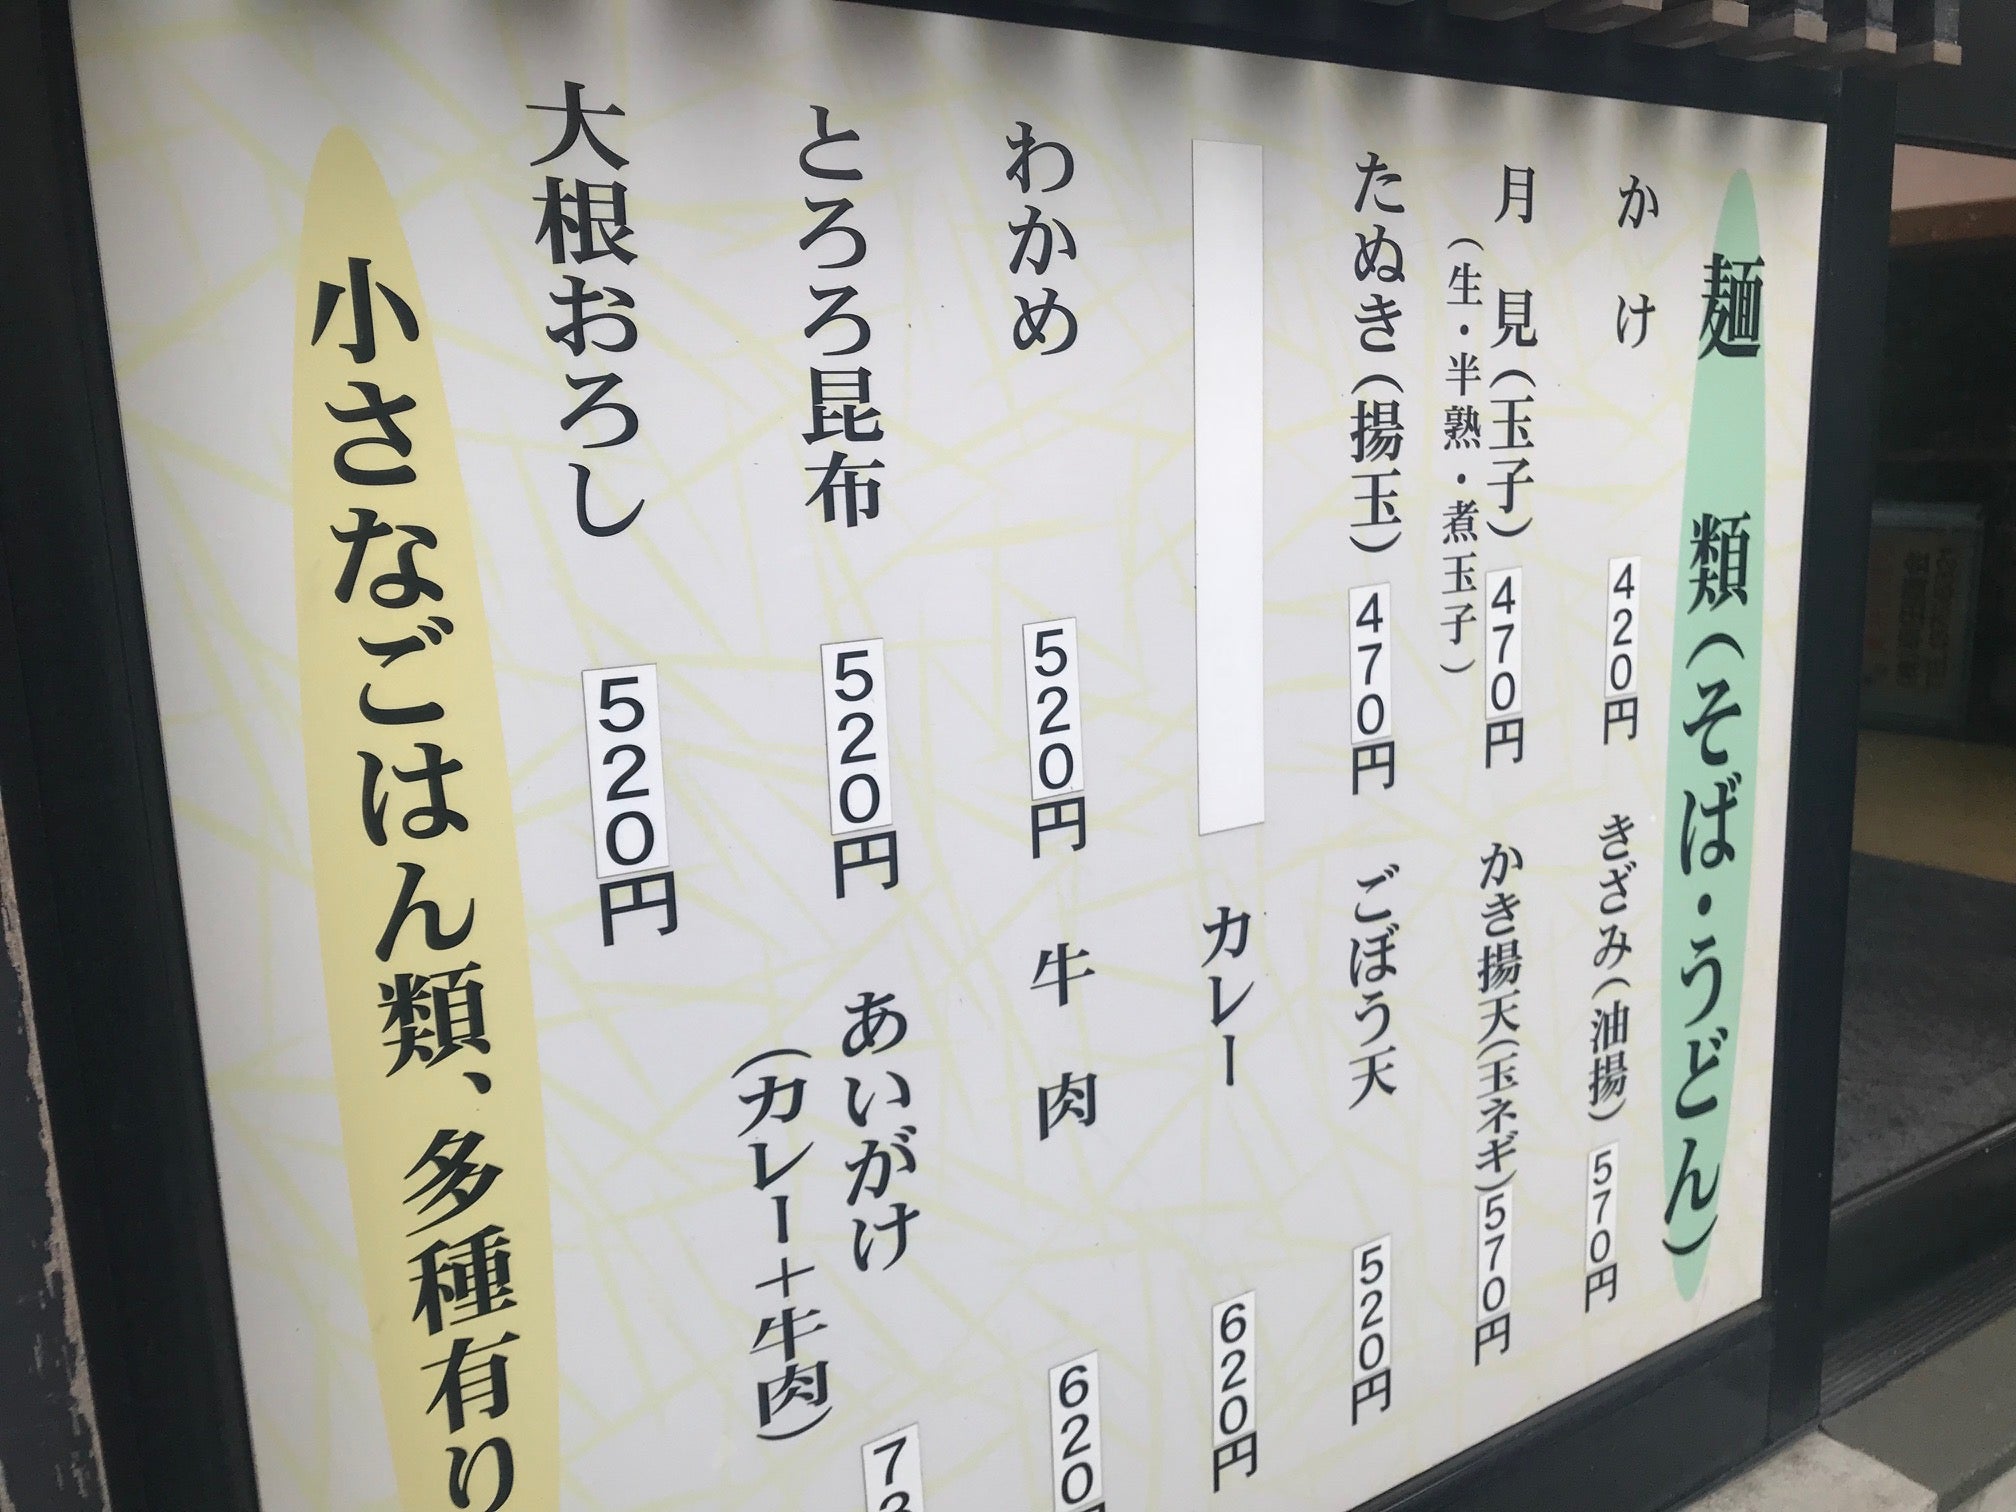 麺 類(そば・うどん)
かけ 420円
きざみ(油揚) 570円
月見(玉子) 470円
(生・半熟・煮玉子)
かき揚天(玉ネギ) 570円
たぬき(揚玉) 470円
ごぼう天 520円
カレー 620円
わかめ 520円
牛肉 620
とろろ昆布 520円
あいがけ
(カレー+牛肉)
大根おろし 520円
小さなごはん類、多種有り